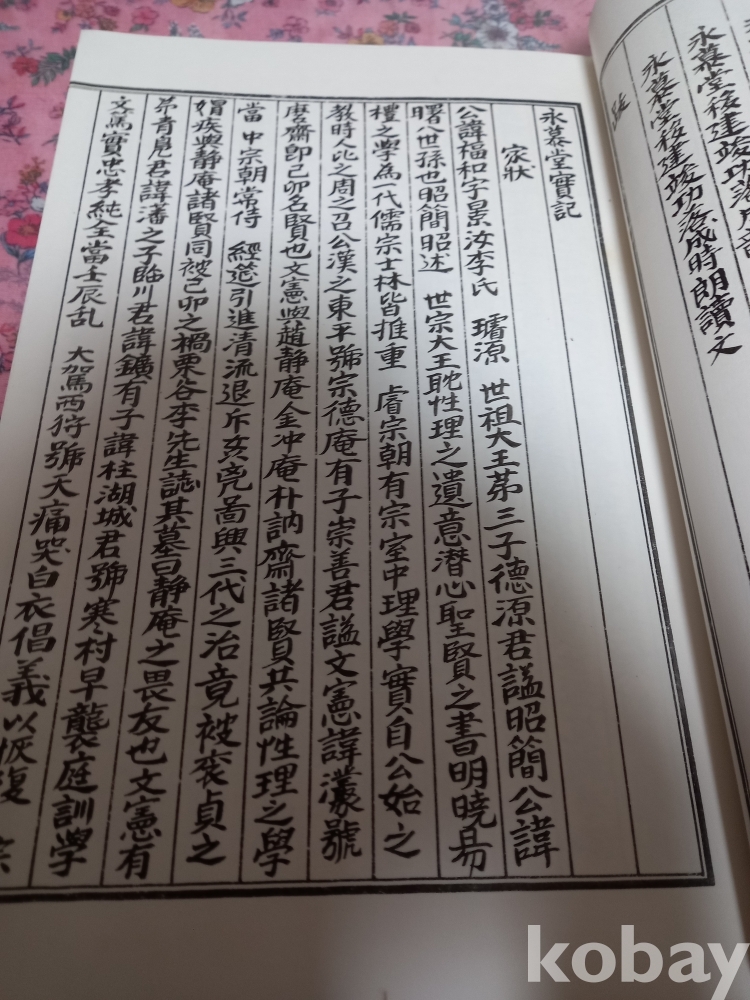 永慕堂移建竣功落成時朗讀文
永慕堂實記
家狀
公諱福和字景汝李氏 璿源 世祖大王第三子德源君諡昭簡公諱
曙八世孫也昭簡昭述 世宗大王耽性理之遺意潛心聖賢之書明曉易
禮之學為一代儒宗士林皆推重 睿宗朝有宗室中理學實自公始之
教時人比之周之召公漢之東平號宗德庵有子崇善君諡文憲諱灇號
麿齋卽己卯名賢也文憲與趙靜庵金冲庵朴訥齋諸賢共論性理之學
當 中宗朝常侍 經筵引進清流退斥奸兇啚興三代之治竟被袞貞之
媢疾與靜庵諸賢同被己卯之禍栗谷李先生誌其墓曰靜庵之畏友也文憲有
弟青見君諱潘之子臨川君諱鑛有子諱柱湖城君號寒村早襲庭訓學
文篤實忠孝純全當壬辰乱 大駕西狩號天痛哭白衣倡義以恢復 宗
kobay